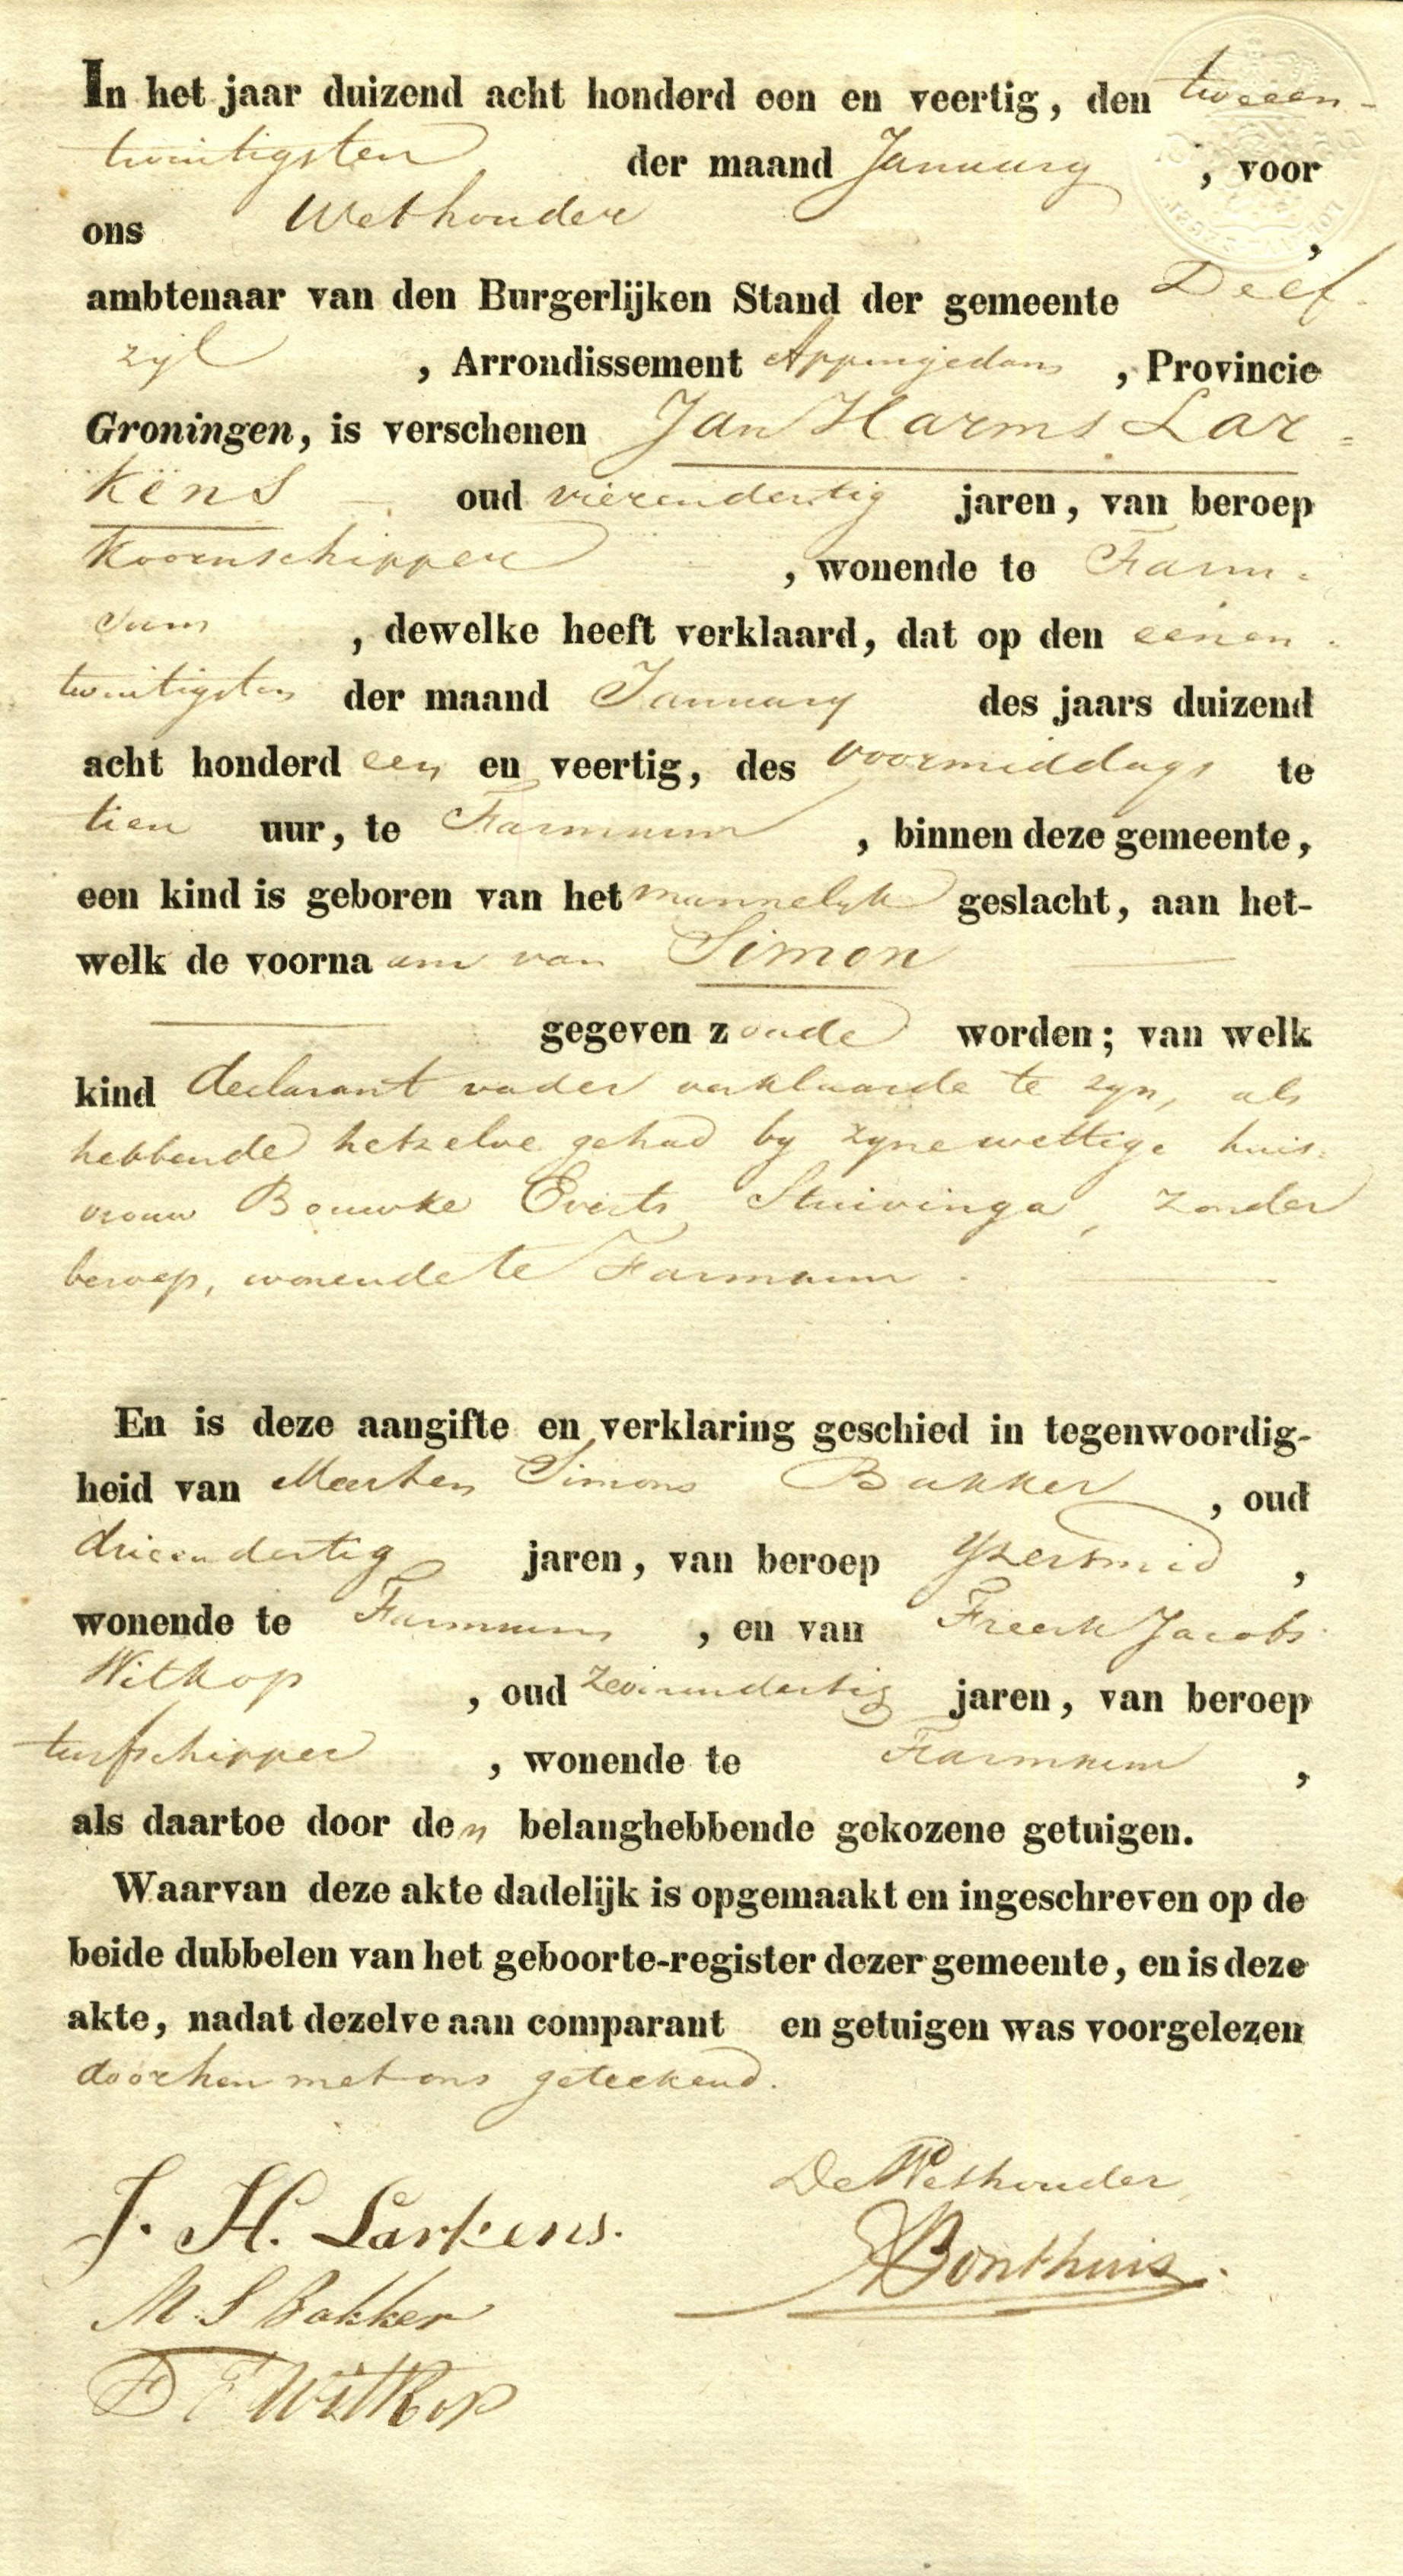 In het jaar duizend acht honderd een en veertig, den tweeen-
twintigsten der maand January, voor
ons Wethouder,
ambtenaar van den Burgerlijken Stand der gemeente Delf-
zyl, Arrondissement Appingedam, Provincie
Groningen, is verschenen Jan Harms Lar=
kens oud vierendertig jaren, van beroep
Koornschipper, wonende te Farm-
sum, dewelke heeft verklaard, dat op den eenen-
twintigsten der maand January des jaars duizend
acht honderd een en veertig, des voormiddags te
tien uur, te Farmsum, binnen deze gemeente,
een kind is geboren van het mannelyk geslacht, aan het-
welk de voornaam van Simon
gegeven zoude worden; van welk
kind declarant vader verklaarde te zyn, als
hebbende hetzelve gehad by zyne wettige huis-
vrouw Bouwke Everts Stuivinga, zonder
beroep, wonende te Farmsum.
En is deze aangifte en verklaring geschied in tegenwoordig-
heid van Marten Simons Bakker, oud
drieendertig jaren, van beroep Yzersmid,
wonende te Farmsum, en van Freerk Jacobs
Witkop, oud zevenendertig jaren, van beroep
turfschipper, wonende te Farmsum,
als daartoe door den belanghebbende gekozene getuigen.
Waarvan deze akte dadelijk is opgemaakt en ingeschreven op de
beide dubbelen van het geboorte-register dezer gemeente, en is deze
akte, nadat dezelve aan comparant en getuigen was voorgelezen
door hen met ons geteekend.
De Wethouder,
J. H. Larkens.
Bonthuis.
M S Bakker
Witkop